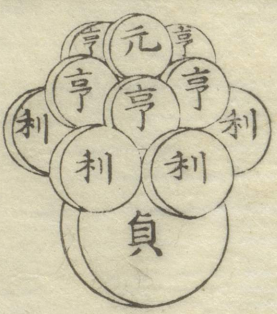 亨 元 亨
亨 亨 亨
利 利 利 利
貞